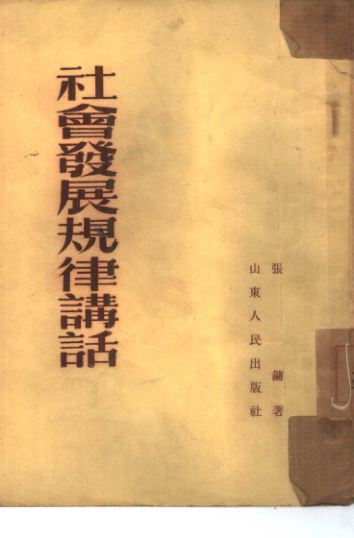 社會發展規律講話
張鏞著
山東人民出版社